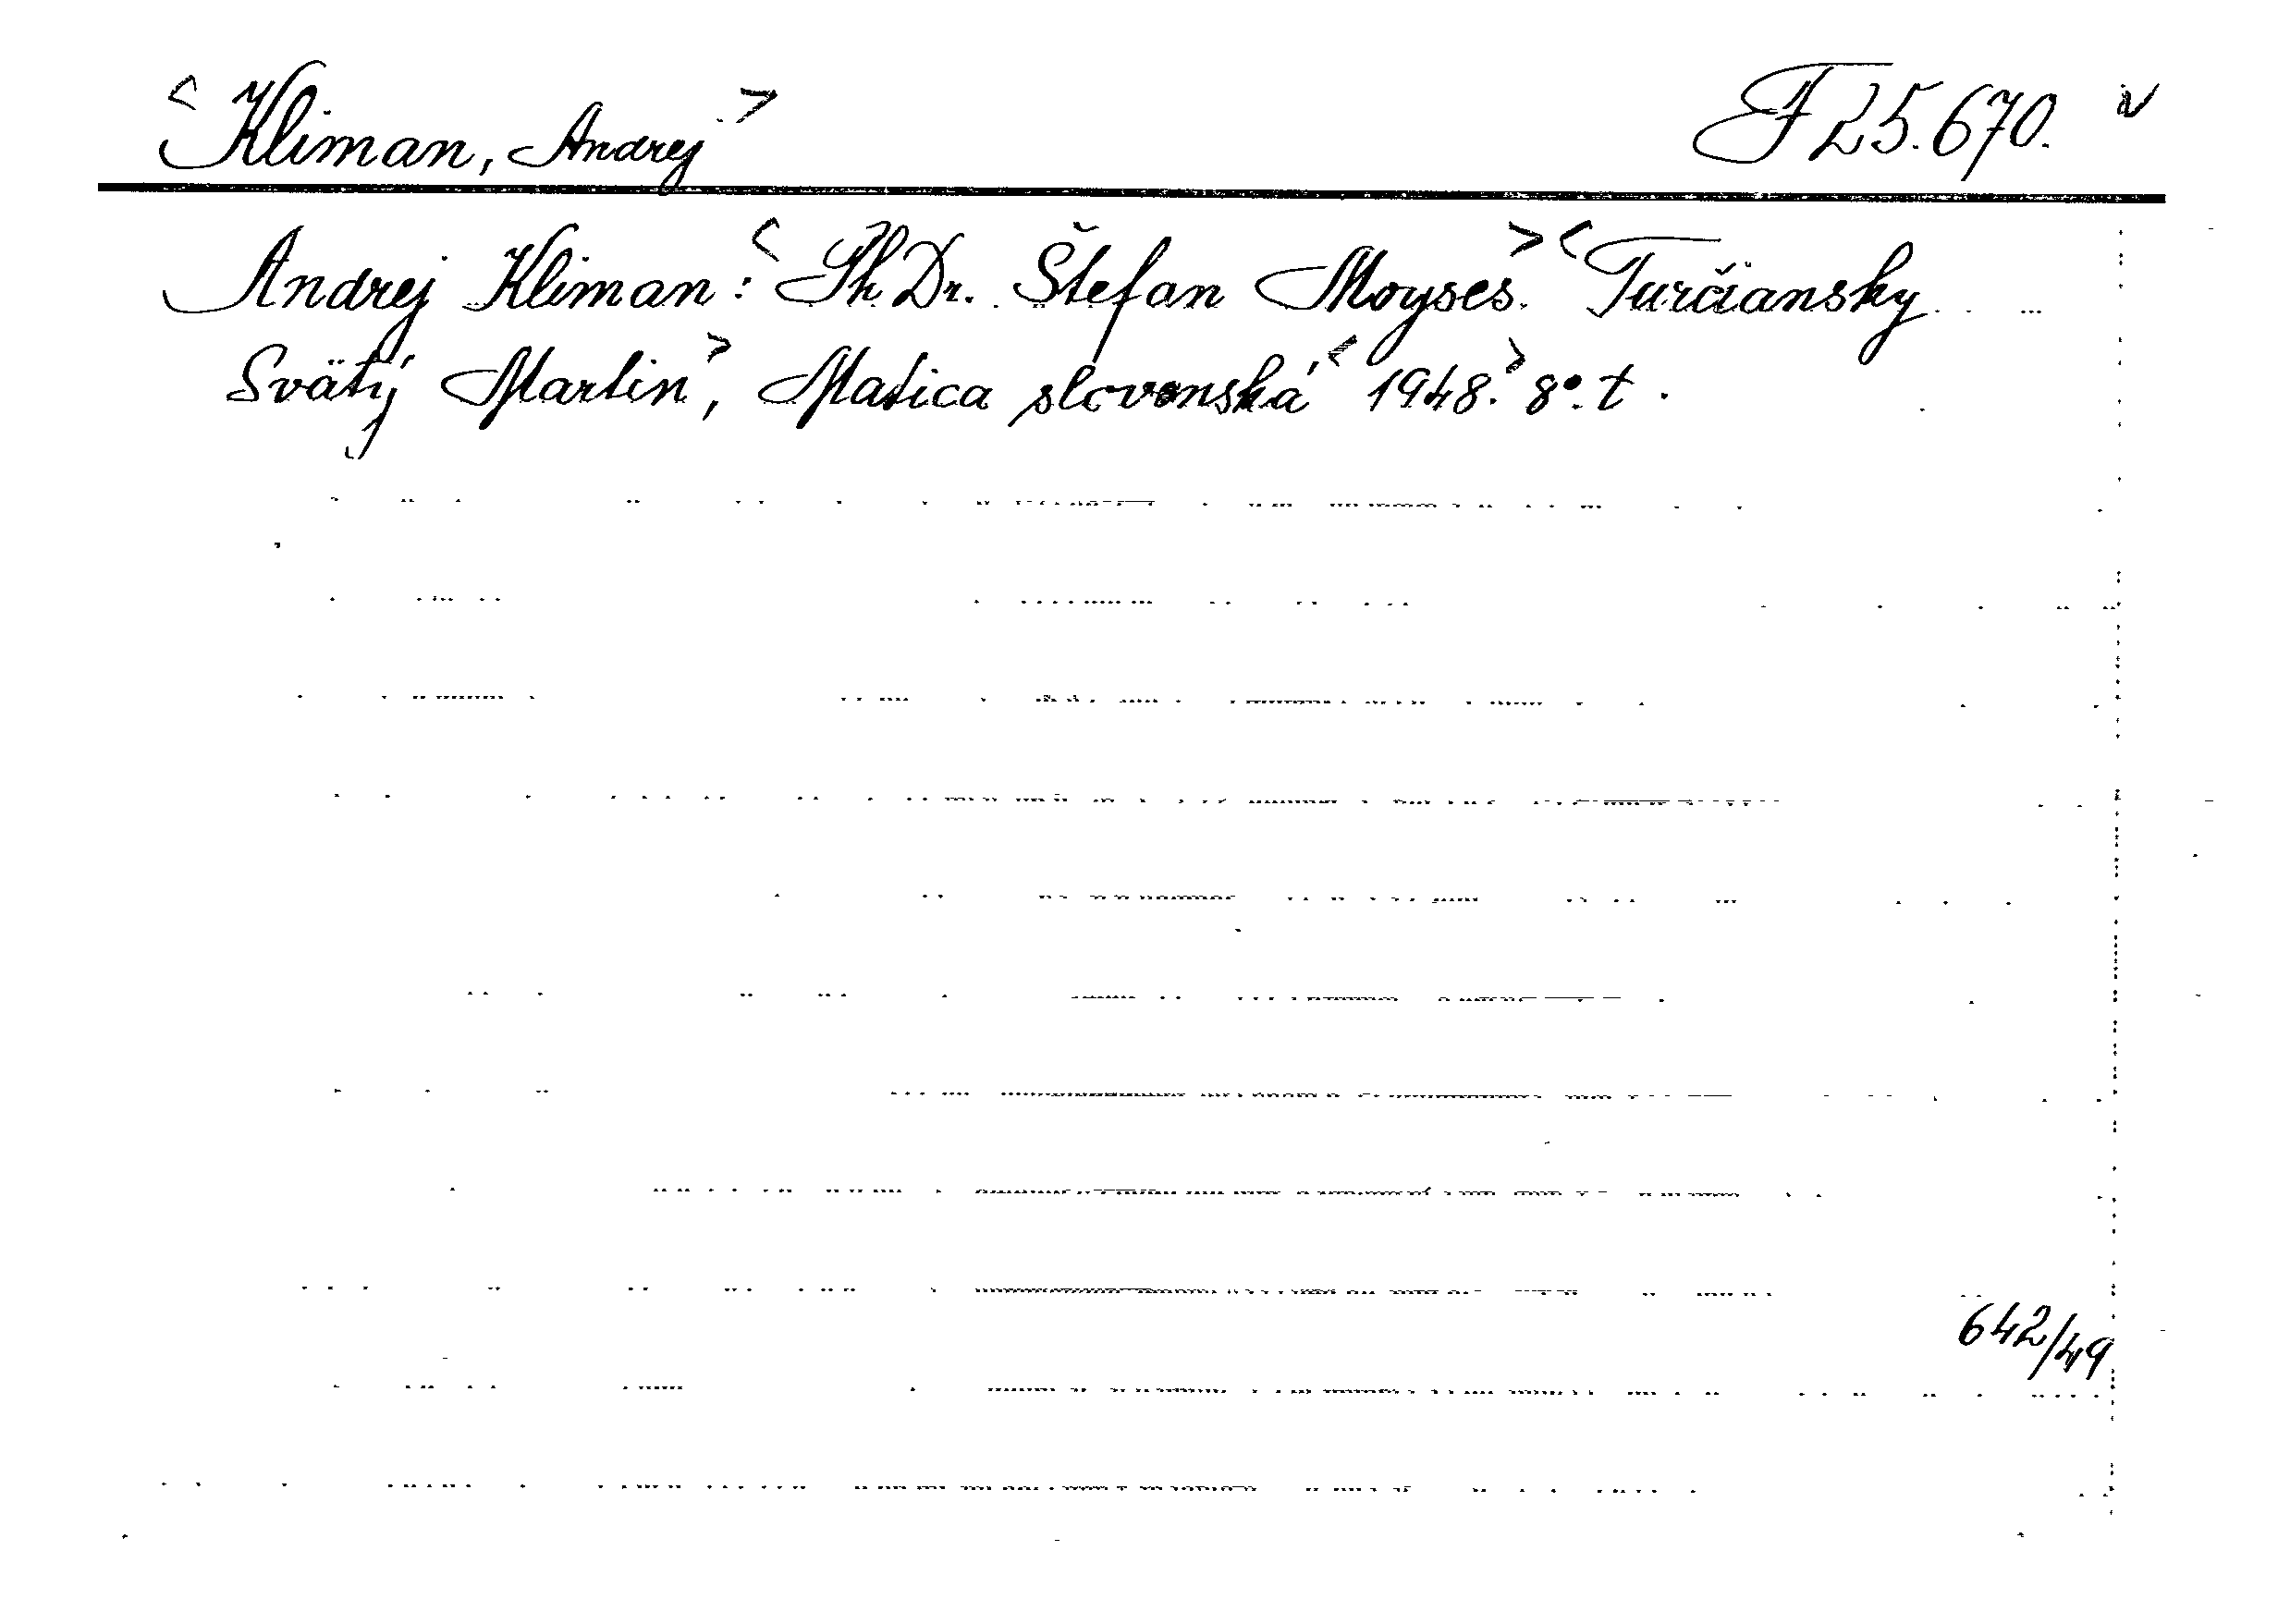 <Kliman, Andrej> F 25.670.
Andrej Kliman: <PhDr. Štefan Moyses.> <Turčiansky
Svätý Martin>, Matica slovenská <1948.> 8°. t.
642/49